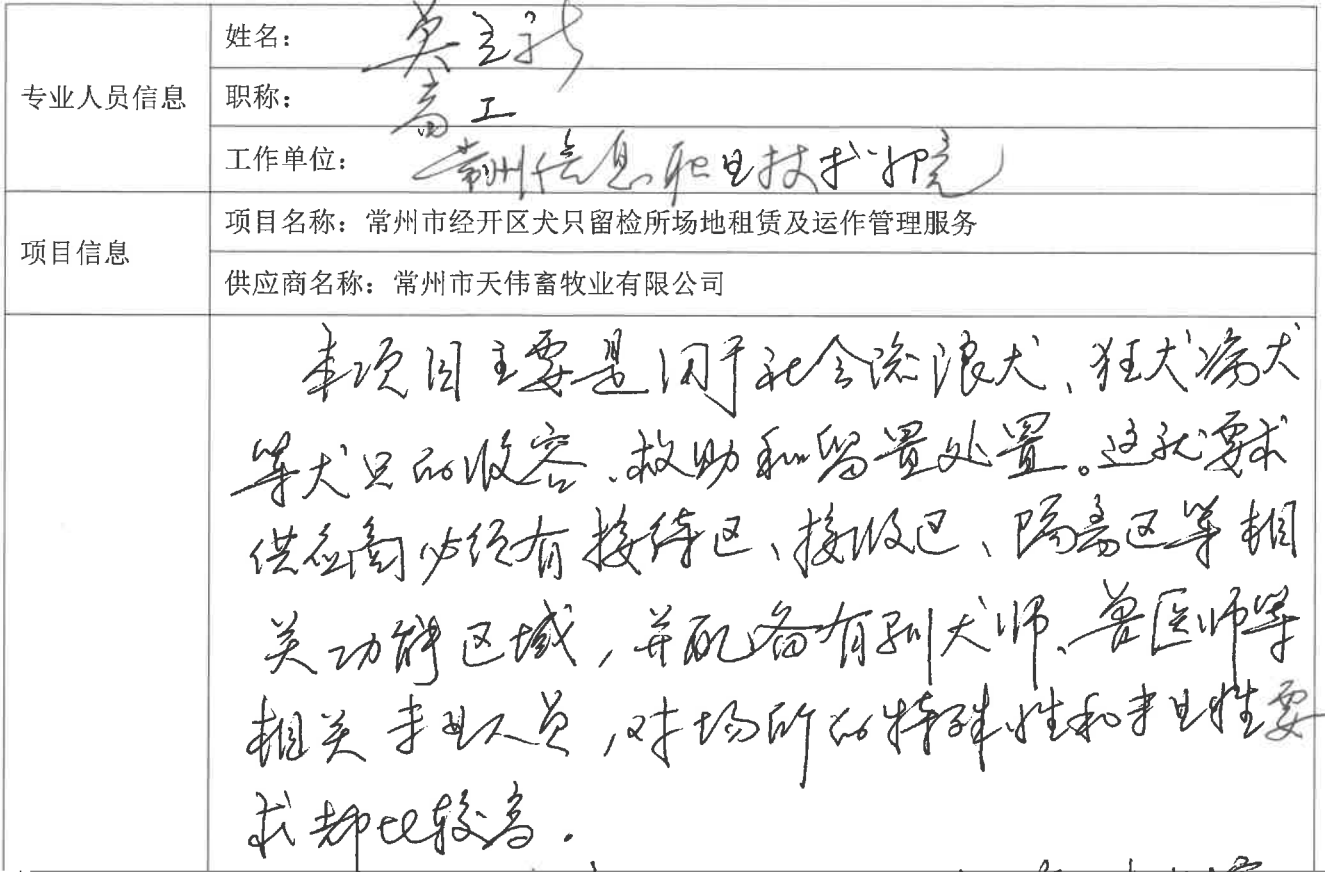 专业人员信息
姓名：莫立新
职称：高工
工作单位：常州信息职业技术学院
项目信息
项目名称：常州市经开区犬只留检所场地租赁及运作管理服务
供应商名称：常州市天伟畜牧业有限公司
本项目主要是用于社会流浪犬、狂犬病犬
等犬只的收容、救助和留置处置。这就要求
供应商必须有接待区、接收区、隔离区等相
关功能区域，并配备有驯犬师、兽医师等
相关专业人员，对场所的特殊性和专业性要
求都比较高．